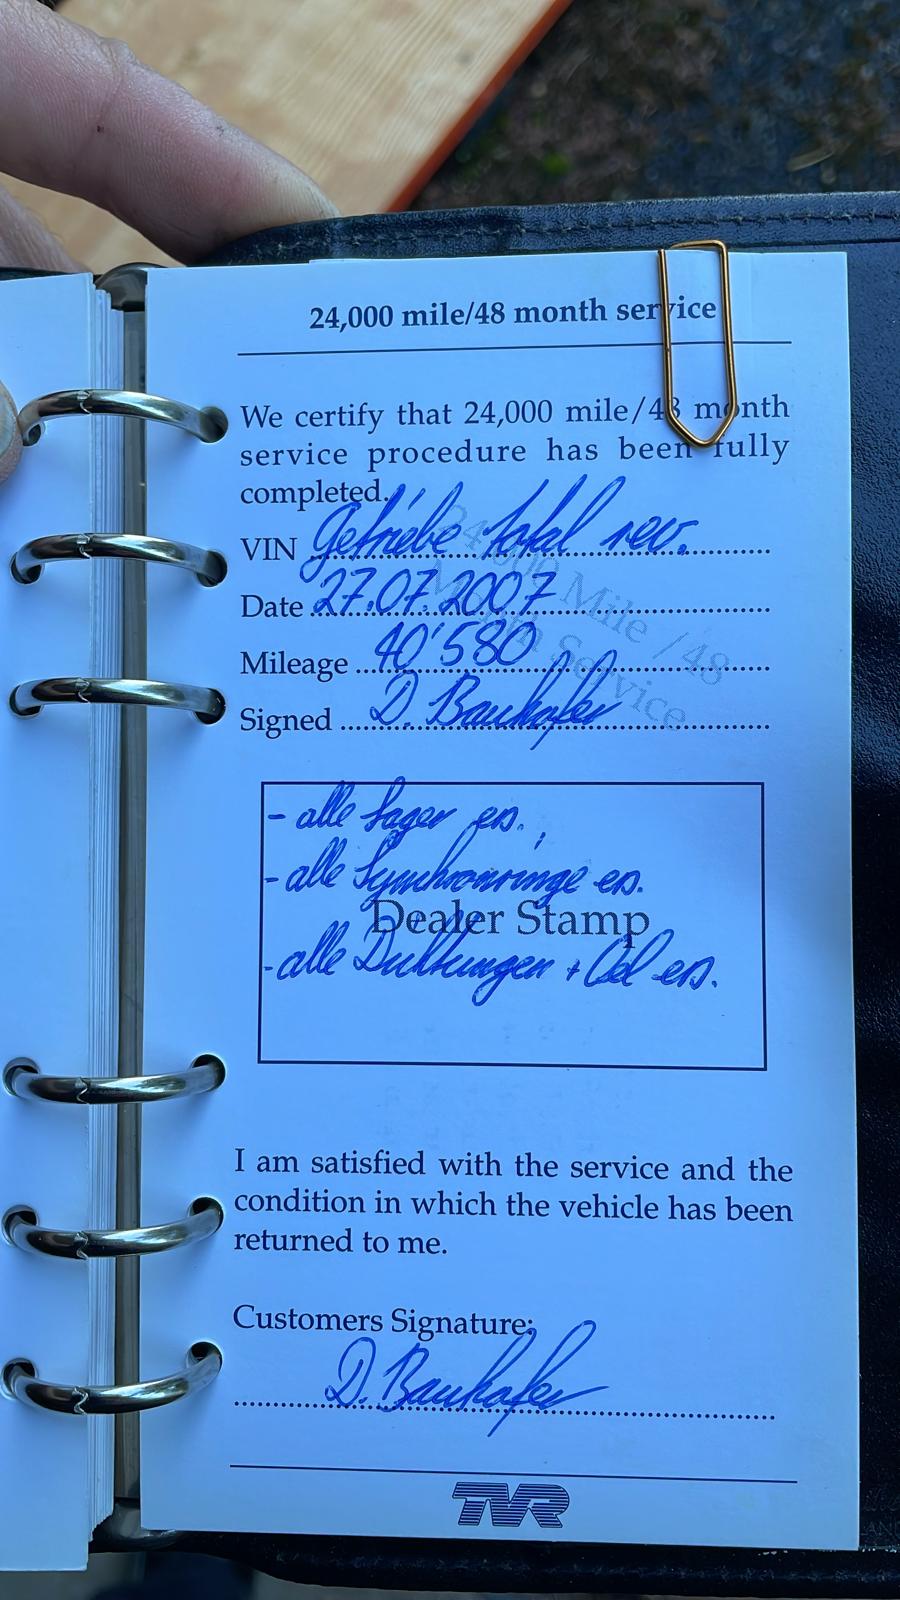 24,000 mile/48 month service
We certify that 24,000 mile/48 month
service procedure has been fully
completed.
VIN Getriebe total rev.
Date 27.07.2007
Mileage 40'580
Signed D. Bauhofer
- alle Lager ers.
- alle Synchronringe ers.
Dealer Stamp
- alle Dichtungen + Oel ers.
I am satisfied with the service and the
condition in which the vehicle has been
returned to me.
Customers Signature:
D. Bauhofer
TVR